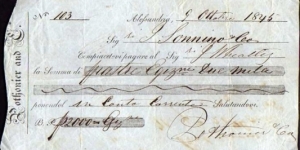 No 103 Alessandria, 9 Ottobre 1845
Sigr J. Sonnino & Co
Compiacetevi pagare al Sigr J. Wheatley
la Somma di Piastre Egiziane Due mila
ponendol in Conto Corrente Salutandovi
P 2000 
Pothonier & Co
Pothonier and C